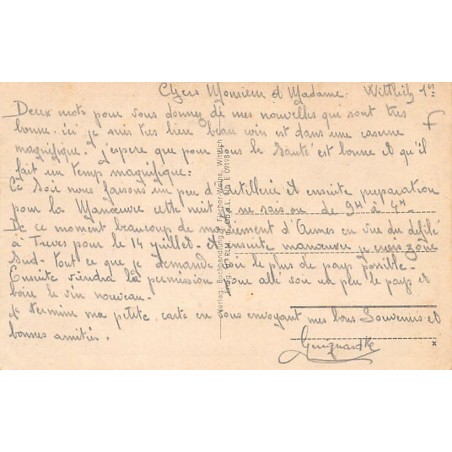 Chers Monsieur et Madame. Wittlich
Deux mots pour vous donner de mes nouvelles qui sont très
bonne. ici je suis très bien beau coin est dans une caserne
magnifique. J'espere que pour vous le Santé est bonne et qu'il
fait un temps magnifique.
Ce soir nous faisons un peu d'artillerie et ensuite preparation
pour la Manœuvre cette nuit je ne sais ou de 9H à 4H.
De ce moment beaucoup de maniement d'armes en vue du defilé
à Treves pour le 14 juillet et ensuite manœuvre je crois zone
Sud. tout ce que je demande voir le plus de pays possible.
Ensuite viendra la permission pour allé voir un peu le pays et
boire le vin nouveau.
Je termine ma petite carte en vous envoyant mes bons Souvenirs et
bonnes amitiés.
Verlag: Buchhandlung Fischer, Wittlich